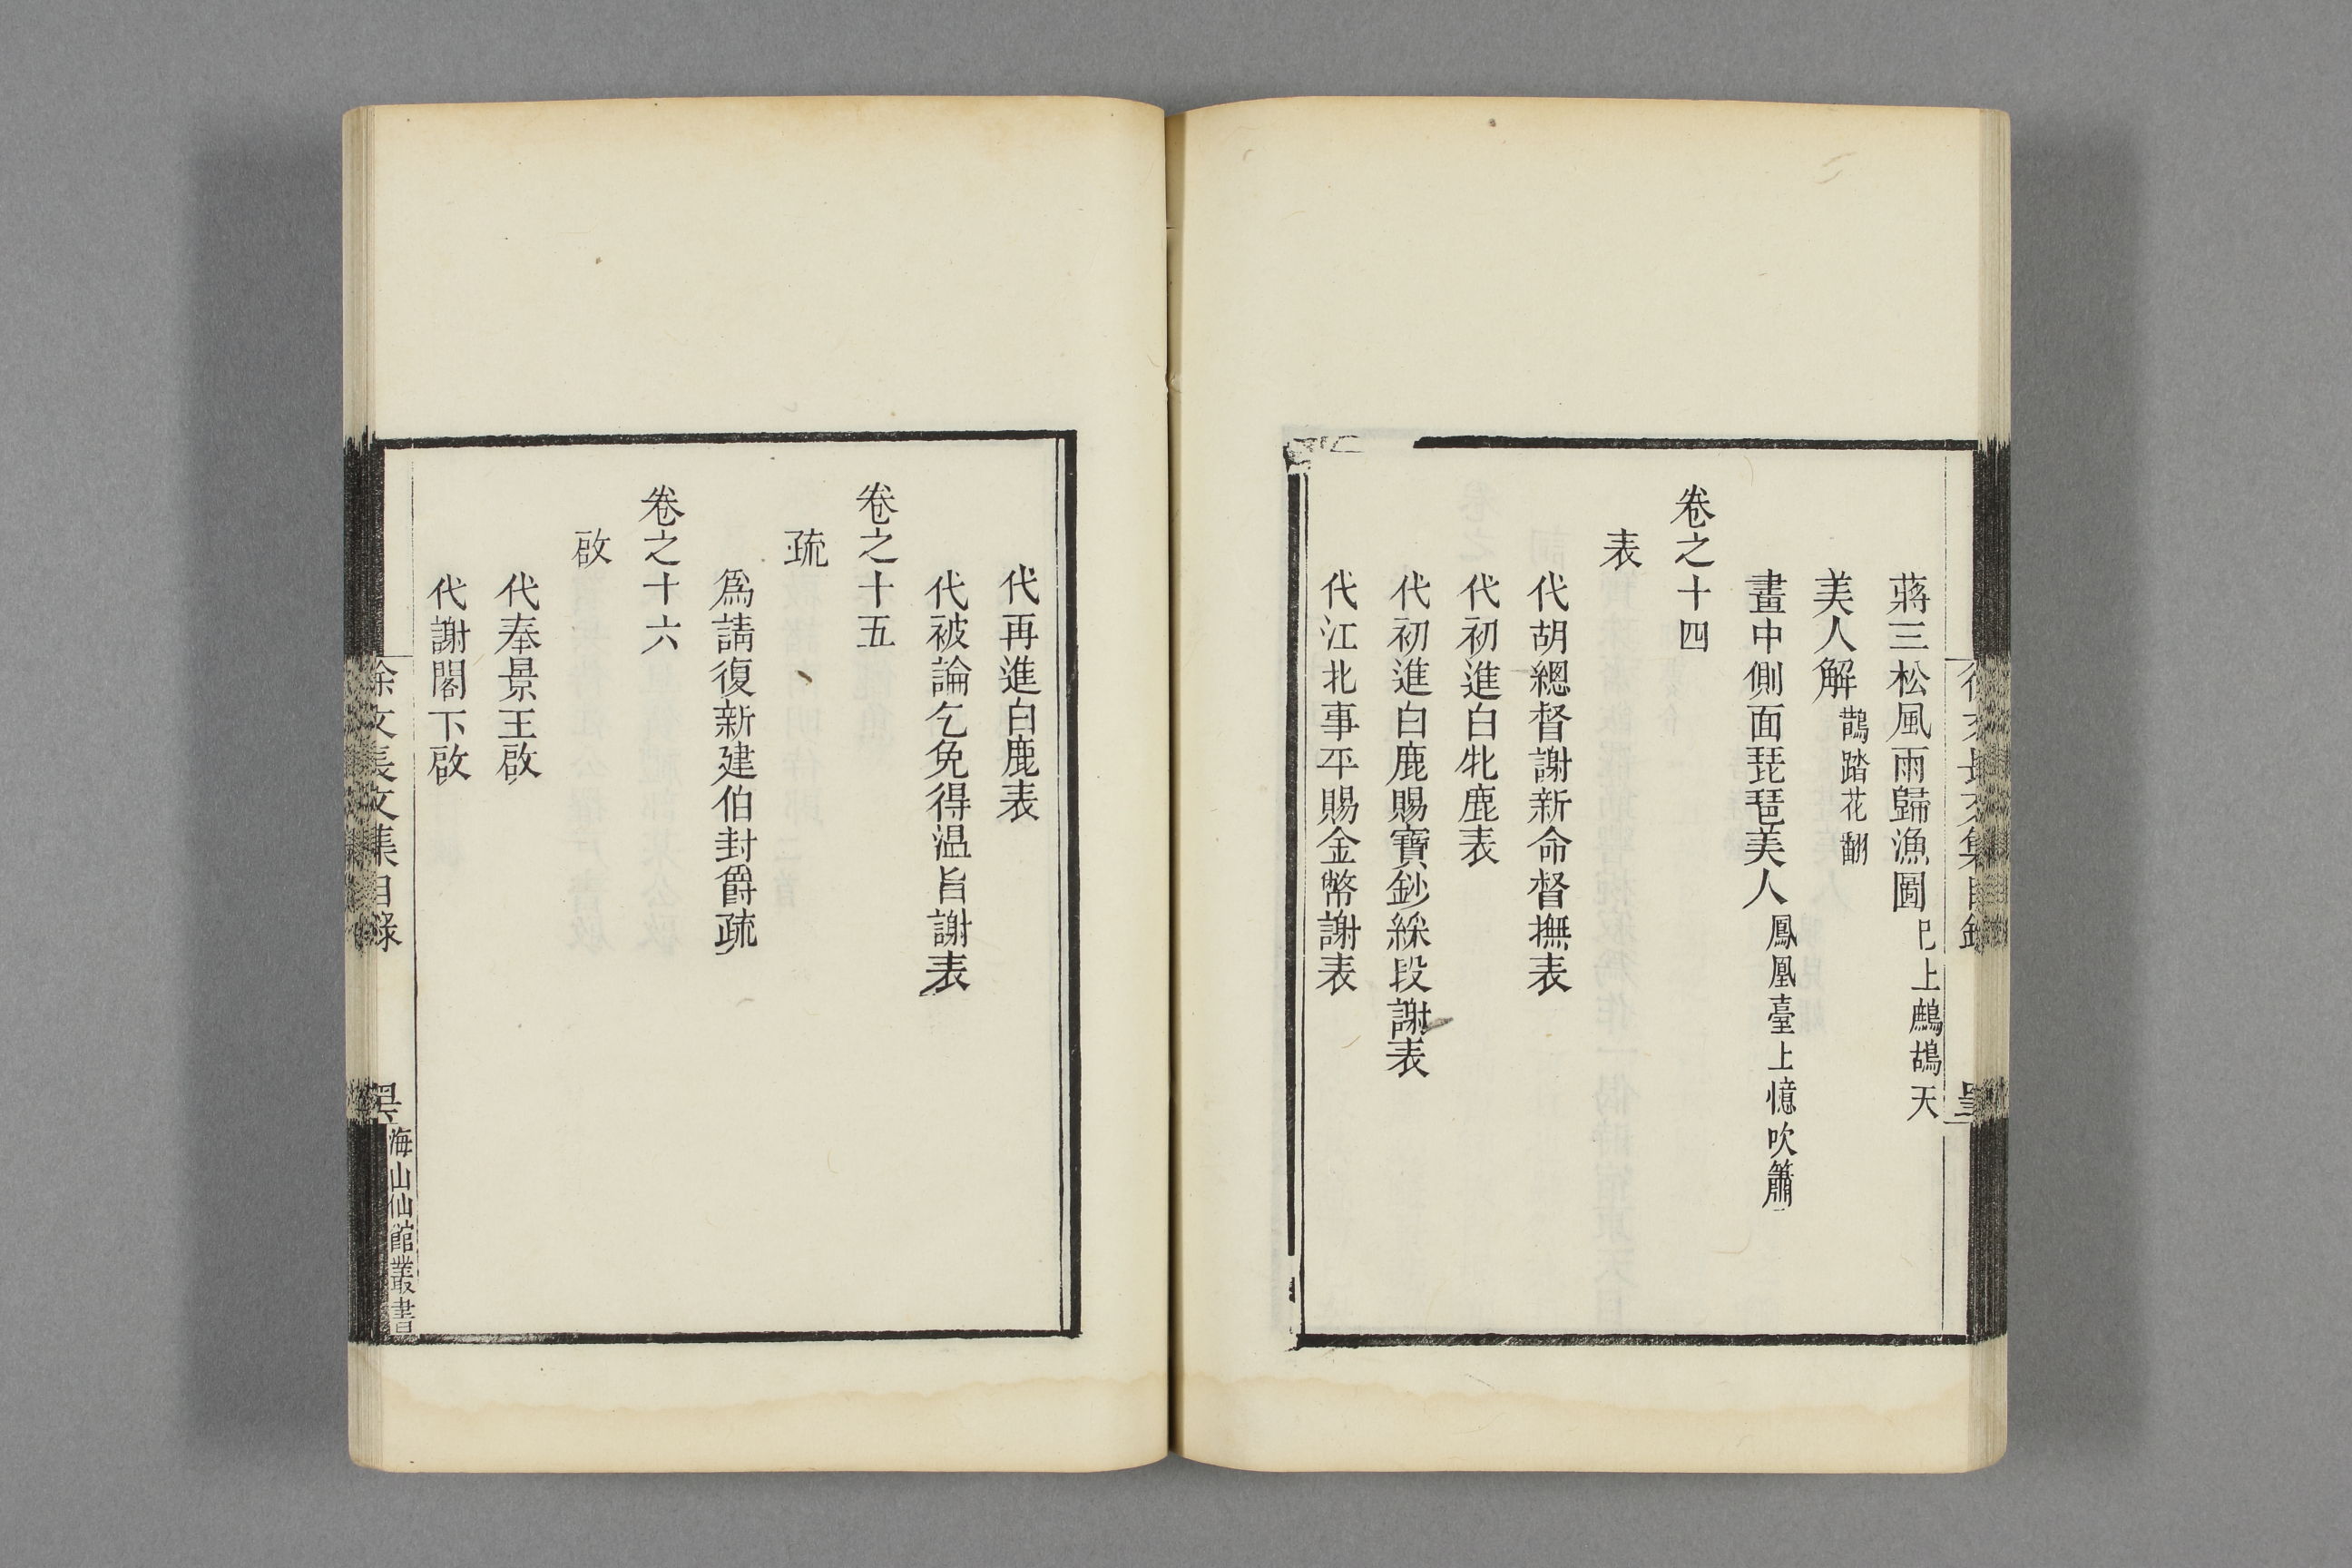 蔣三松風雨歸漁圖 巳上鷓鴣天
美人解 鵲踏花翻
畫中側面琵琶美人 鳳凰臺上憶吹簫
卷之十四
表
代胡總督謝新命督撫表
代初進白牝鹿表
代初進白鹿賜寶鈔綵段謝表
代江北事平賜金幣謝表
代再進白鹿表
代被論乞免得温旨謝表
卷之十五
疏
爲請復新建伯封爵疏
卷之十六
啟
代奉景王啟
代謝閣下啟
徐文長文集目錄
海山仙館叢書